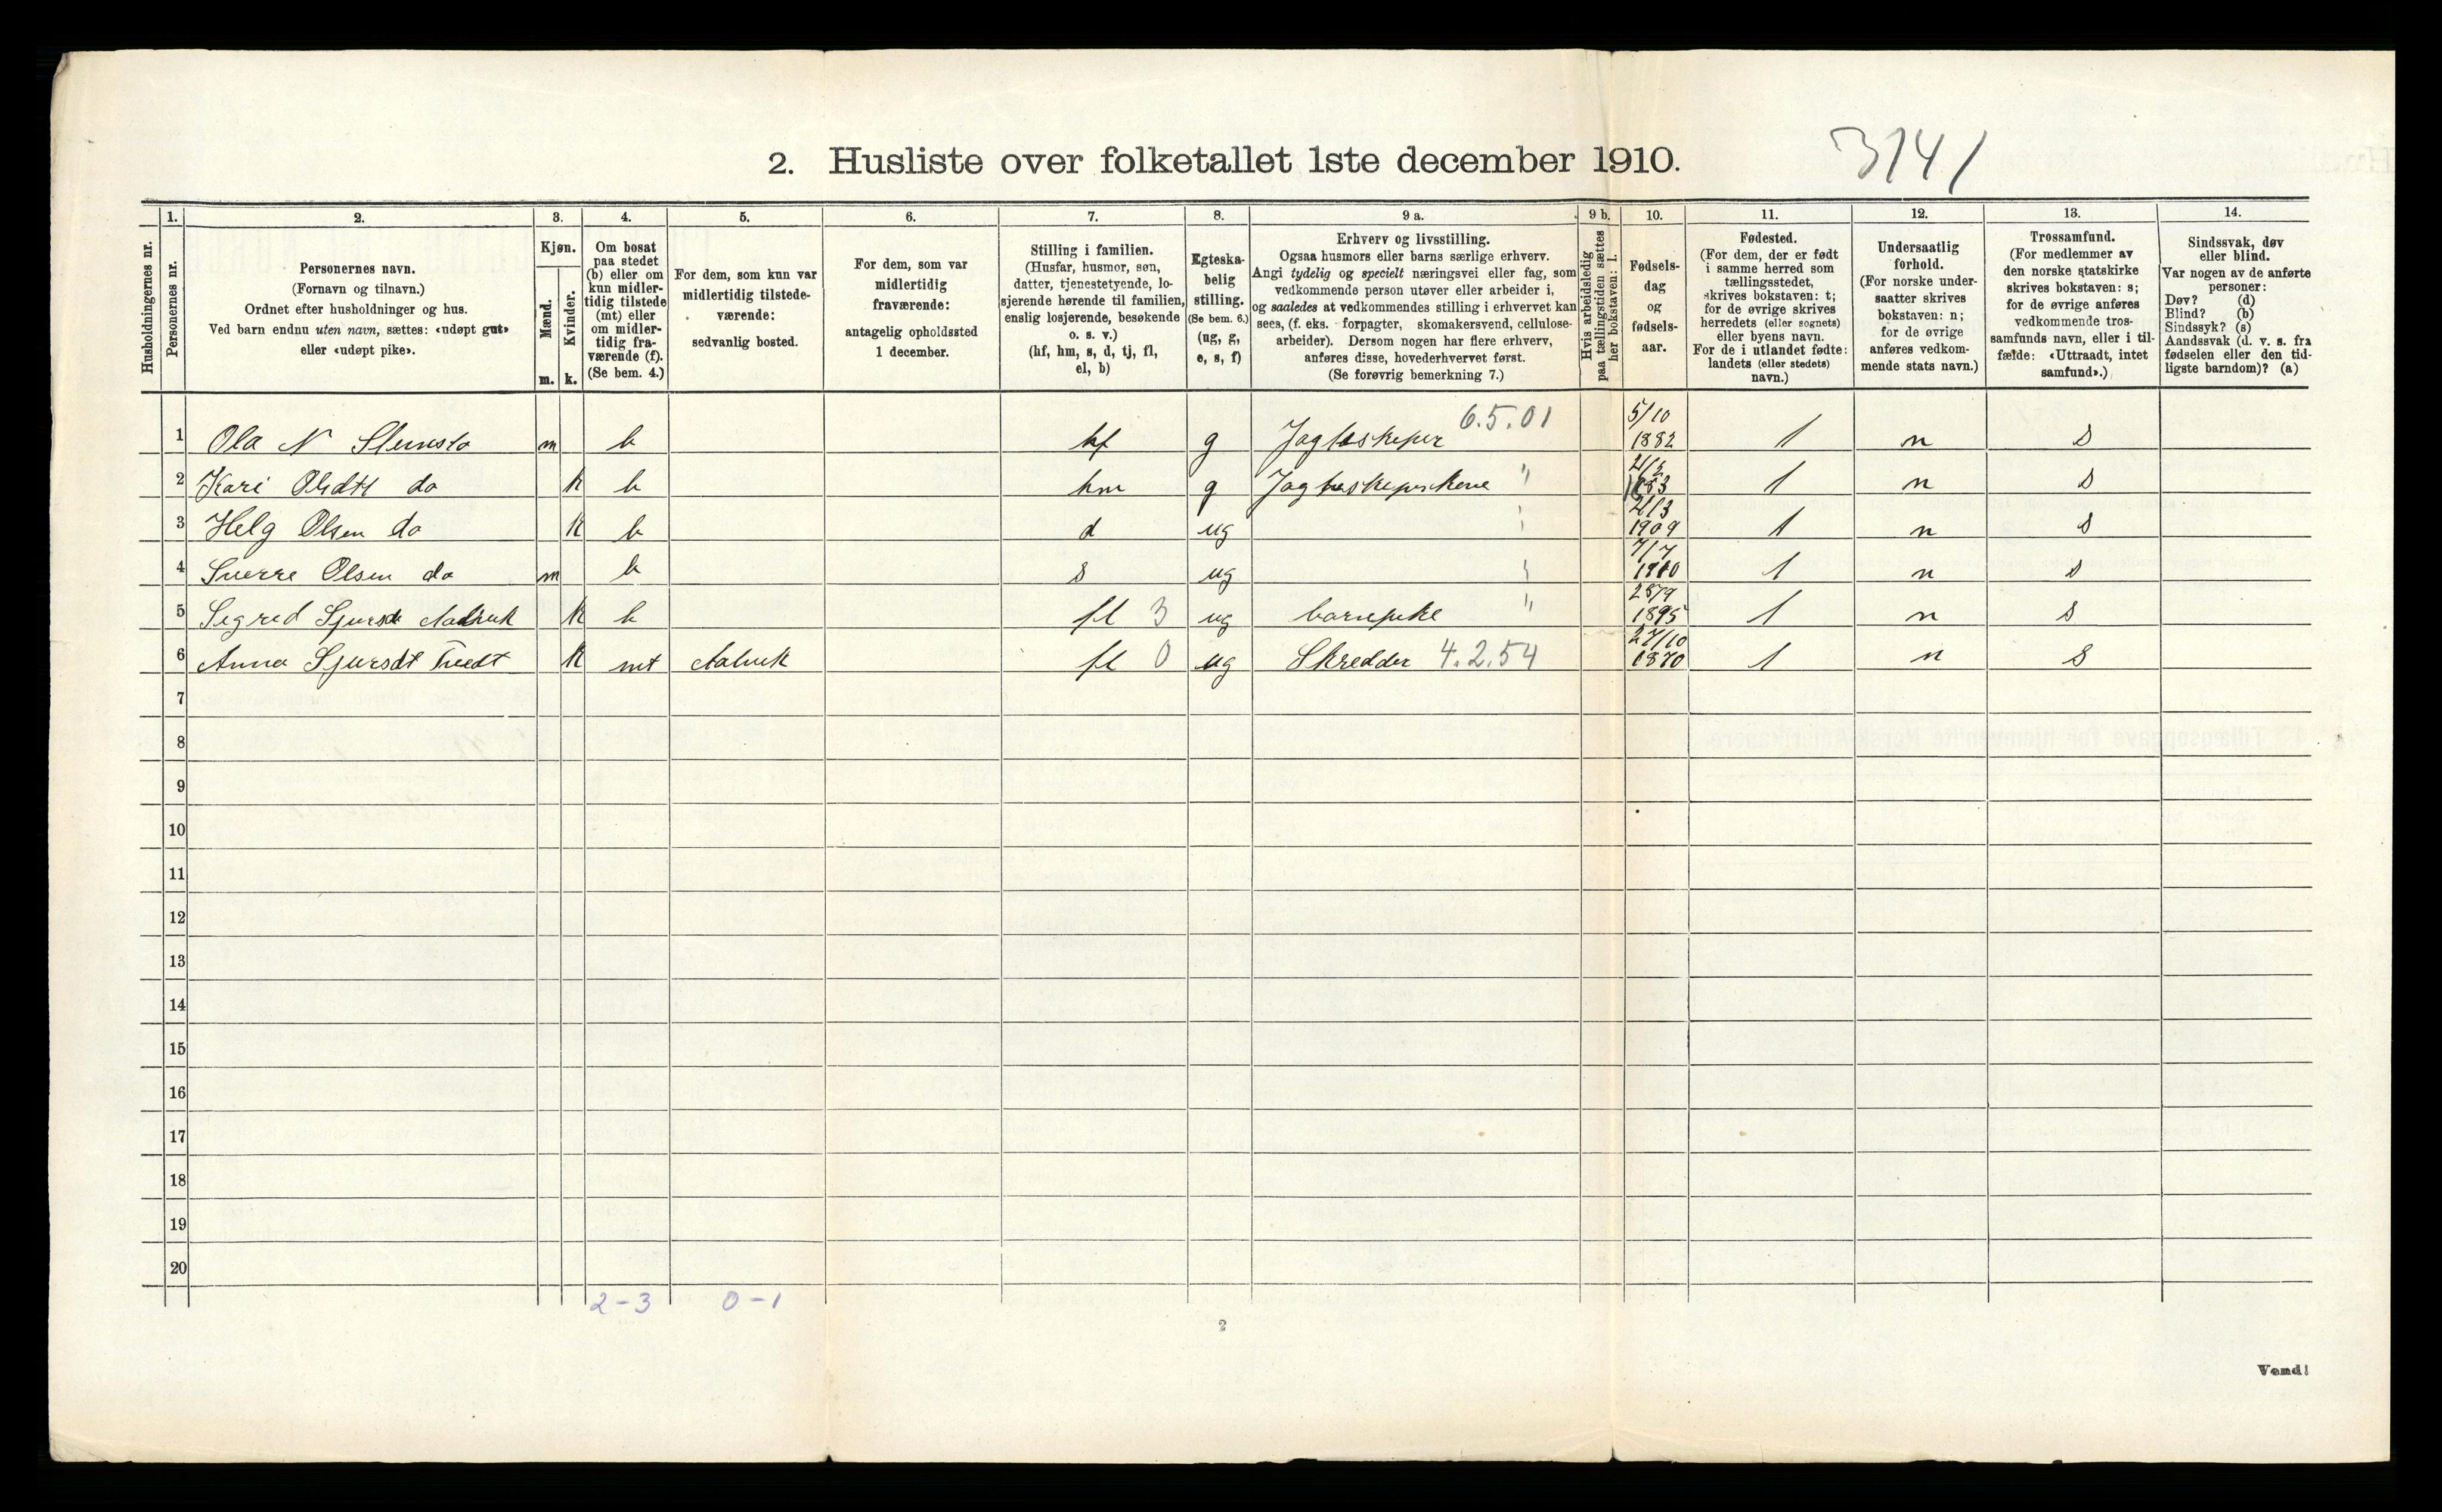 2. Husliste over folketallet 1ste december 1910.
3141
Husholdningernes nr.
1. Personernes nr.
2. Personernes navn.
(Fornavn og tilnavn.)
Ordnet efter husholdninger og hus.
Ved barn endnu uten navn, sættes: «udøpt gut»
eller «udøpt pike».
3. Kjøn.
Mænd. m.
Kvinder. k.
4. Om bosat
paa stedet
(b) eller om
kun midler-
tidig tilstede
(mt) eller
om midler-
tidig fra-
værende (f).
(Se bem. 4.)
5. For dem, som kun var
midlertidig tilstede-
værende:
sedvanlig bosted.
6. For dem, som var
midlertidig
fraværende:
antagelig opholdssted
1 december.
7. Stilling i familien.
(Husfar, husmor, søn,
datter, tjenestetyende, lo-
sjerende hørende til familien,
enslig losjerende, besøkende
o. s. v.)
(hf, hm, s, d, tj, fl,
el, b)
8. Egteska-
belig
stilling.
(Se bem. 6.)
(ug, g,
e, s, f)
9 a. Erhverv og livsstilling.
Ogsaa husmors eller barns særlige erhverv.
Angi tydelig og specielt næringsvei eller fag, som
vedkommende person utøver eller arbeider i,
og saaledes at vedkommendes stilling i erhvervet kan
sees, (f. eks. forpagter, skomakersvend, cellulose-
arbeider). Dersom nogen har flere erhverv,
anføres disse, hovederhvervet først.
(Se forøvrig bemerkning 7.)
9 b. Hvis arbeidsledig
paa tællingstiden sættes
her bokstaven: l.
10. Fødsels-
dag
og
fødsels-
aar.
11. Fødested.
(For dem, der er født
i samme herred som
tællingsstedet,
skrives bokstaven: t;
for de øvrige skrives
herredets (eller sognets)
eller byens navn.
For de i utlandet fødte:
landets (eller stedets)
navn.)
12. Undersaatlig
forhold.
(For norske under-
saatter skrives
bokstaven: n;
for de øvrige
anføres vedkom-
mende stats navn.)
13. Trossamfund.
(For medlemmer av
den norske statskirke
skrives bokstaven: s;
for de øvrige anføres
vedkommende tros-
samfunds navn, eller i til-
fælde: «Uttraadt, intet
samfund».)
14. Sindssvak, døv
eller blind.
Var nogen av de anførte
personer:
Døv? (d)
Blind? (b)
Sindssyk? (s)
Aandssvak (d. v. s. fra
fødselen eller den tid-
ligste barndom)? (a)
1 Ola N m b hf g 6.5.01 5/10 1882 t n s
2 Kari do k b hm g " 1883 t n s
3 Helg Olsen do k b d ug " 21/3 1909 t n s
4 Sverre Olsen do m b s ug " 7/7 1910 t n s
5 Sigrid Sjursdt k b fl 3 ug barnepike " 28/9 1895 t n s
6 Anna Sjursdt Tvedt k mt Aalvik fl 0 ug Skredder 4.2.54 27/10 1870 t n s
7
8
9
10
11
12
13
14
15
16
17
18
19
20
2-3 0-1
2
Vend!